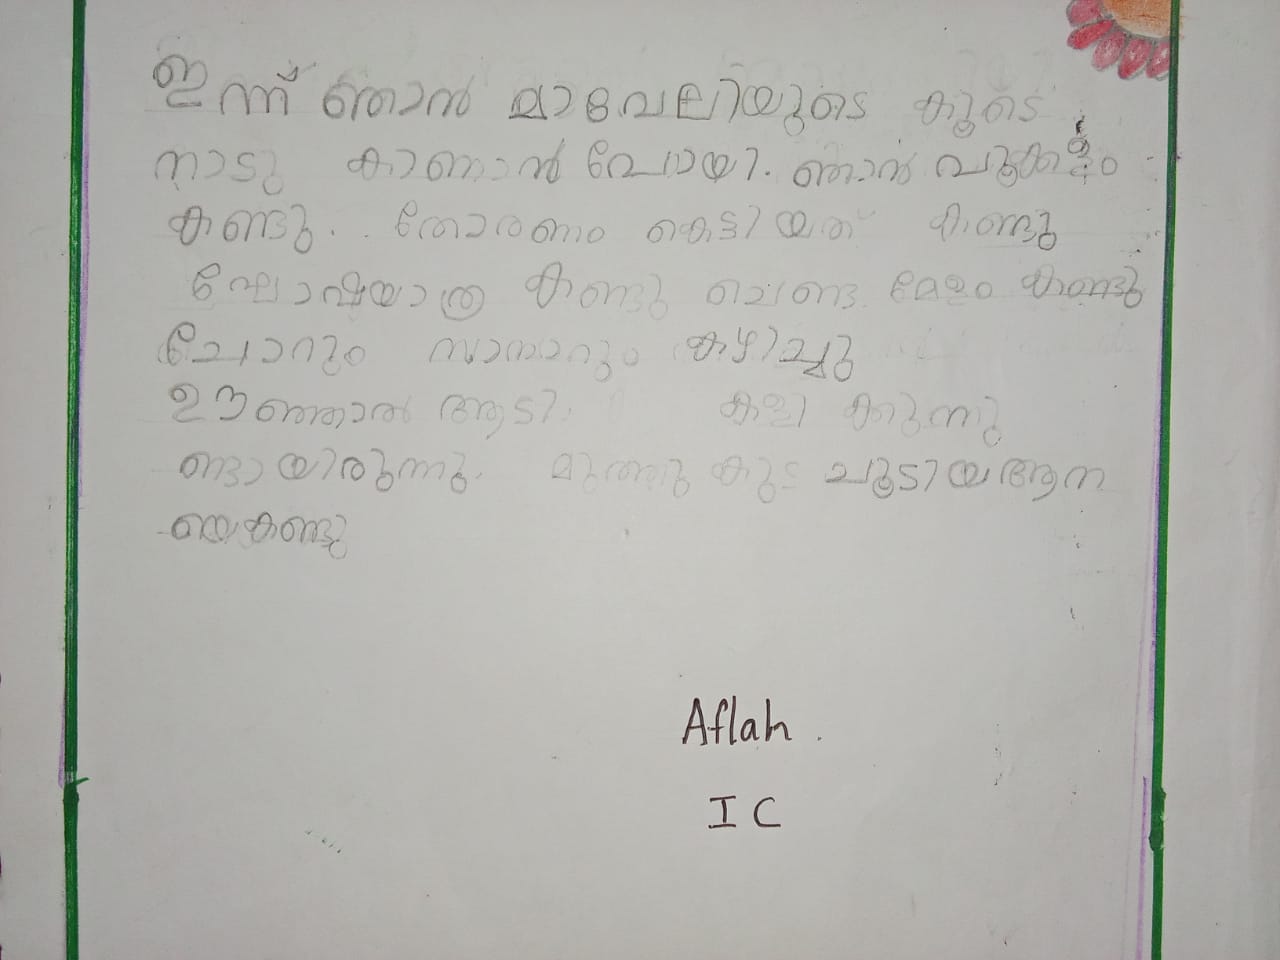 ഇന്ന് ഞാൻ മാവേലിയുടെ കൂടെ
നാടു കാണാൻ പോയി. ഞാൻ പൂക്കളം
കണ്ടു. തോരണം കെട്ടിയത് കണ്ടു
ഘോഷയാത്ര കണ്ടു ചെണ്ട മേളം കണ്ടു
ചോറും സാമ്പാറും കഴിച്ചു
ഊഞ്ഞാൽ ആടി. കളി ക്കുന്നു
ണ്ടായിരുന്നു. മുത്തു കുട ചൂടിയ ആന
യെ കണ്ടു
Aflah.
I C